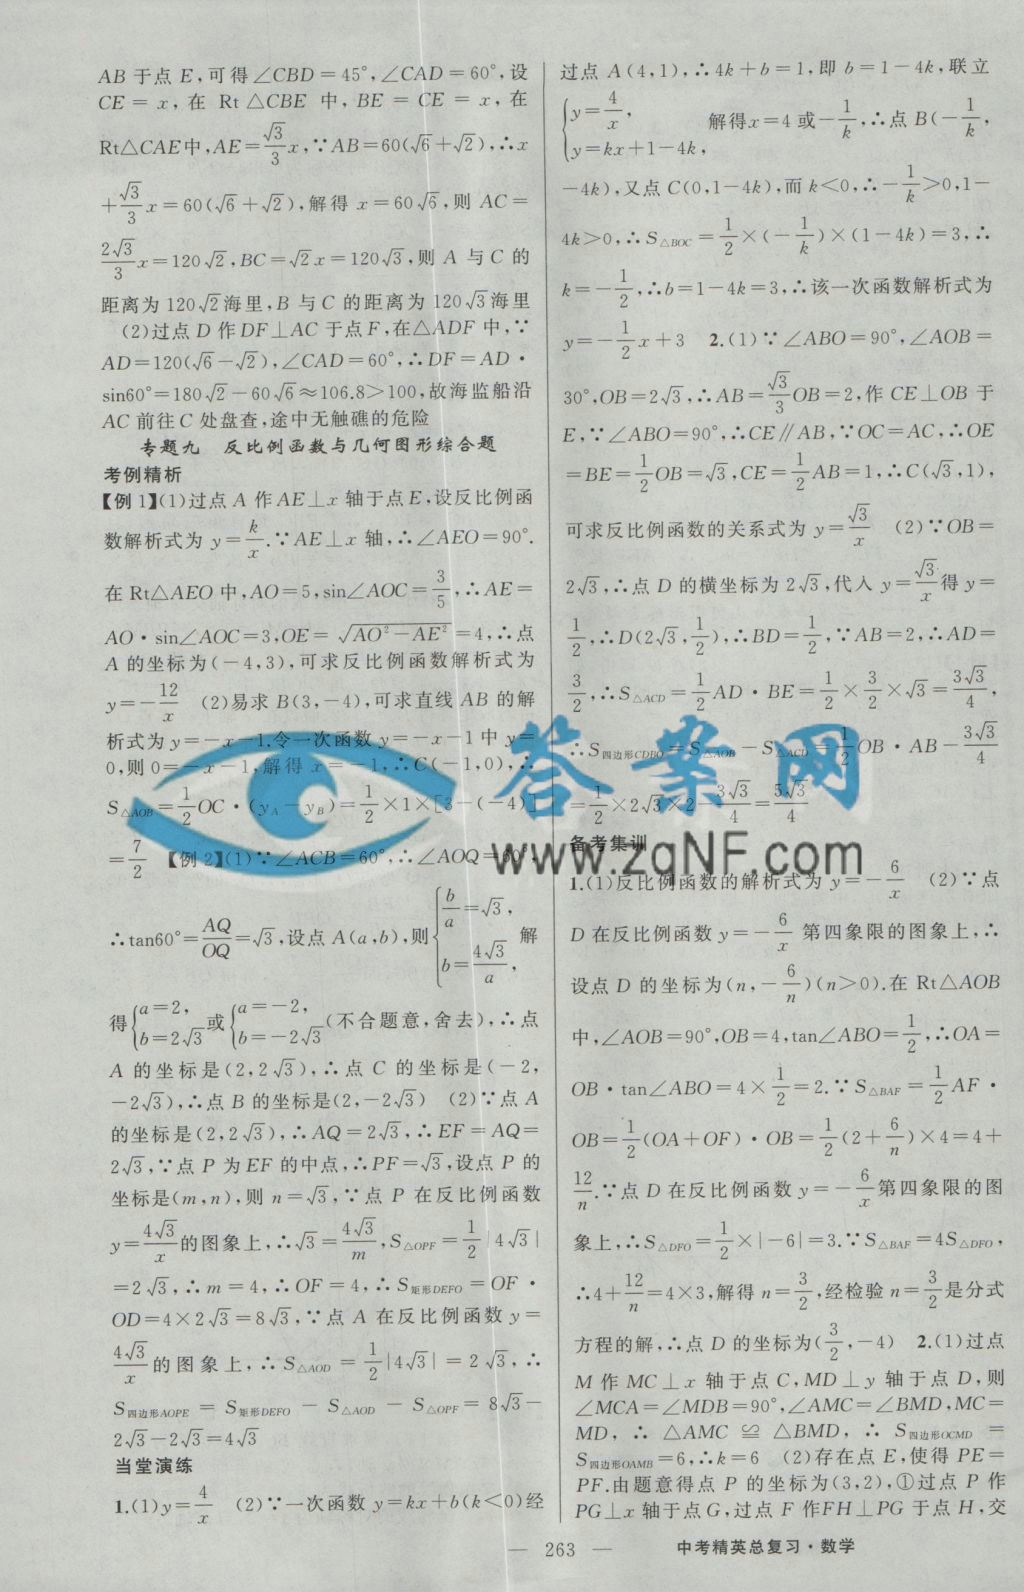 AB于点E,可得∠CBD=45°,∠CAD=60°,设
CE=x,在 Rt△CBE 中,BE=CE=x,在
Rt△CAE中,AE=√3/3 x,∵AB=60(√6+√2),∴x
+√3/3 x=60(√6+√2),解得 x=60√6,则 AC=
2√3/3 x=120√2,BC=√2x=120√3,则 A 与 C 的
距离为120√2海里,B 与 C 的距离为120√3海里
(2)过点 D 作DF⊥AC 于点F,在△ADF 中,∵
AD=120(√6-√2),∠CAD=60°,∴DF=AD·
sin60°=180√2-60√6≈106.8>100,故海监船沿
AC 前往C 处盘查,途中无触礁的危险
专题九 反比例函数与几何图形综合题
考例精析
【例1】(1)过点 A 作AE⊥x 轴于点E,设反比例函
数解析式为 y=k/x.∵AE⊥x 轴,∴∠AEO=90°.
在Rt△AEO 中,AO=5,sin∠AOC=3/5,∴AE=
AO·sin∠AOC=3,OE=√(AO²-AE²)=4,∴点
A 的坐标为(-4,3),可求反比例函数解析式为
y=-12/x (2)易求 B(3,-4),可求直线 AB 的解
析式为y=-x-1.令一次函数y=-x-1中y=
0,则0=-x-1,解得 x=-1,∴C(-1,0),∴
S△AOB=1/2 OC·(yA-yB)=1/2×1×[3-(-4)]
=7/2 【例2】(1)∵∠ACB=60°,∴∠AOQ=60°,
∴tan60°=AQ/OQ=√3,设点 A(a,b),则{b/a=√3, b=4√3/a, 解
得{a=2, b=2√3 或{a=-2, b=-2√3 (不合题意,舍去),∴点
A 的坐标是(2,2√3),∴点 C 的坐标是(-2,
-2√3),∴点 B 的坐标是(2,-2√3) (2)∵点 A
的坐标是(2,2√3),∴AQ=2√3,∴EF=AQ=
2√3,∵点 P 为EF 的中点,∴PF=√3,设点 P 的
坐标是(m,n),则 n=√3,∵点 P 在反比例函数
y=4√3/x的图象上,∴√3=4√3/m,S△OPF=1/2|4√3|
=2√3,∴m=4,∴OF=4,∴S矩形DEFO=OF·
OD=4×2√3=8√3,∵点 A 在反比例函数 y=
4√3/x 的图象上,∴S△AOD=1/2|4√3|=2√3,∴
S四边形AOPE=S矩形DEFO-S△AOD-S△OPF=8√3-
2√3-2√3=4√3
当堂演练
1.(1)y=4/x (2)∵一次函数 y=kx+b(k<0)经
过点 A(4,1),∴4k+b=1,即 b=1-4k,联立
{y=4/x, y=kx+1-4k, 解得x=4 或-1/k,∴点 B(-1/k,
-4k),又点C(0,1-4k),而 k<0,∴-1/k>0,1-
4k>0,∴S△BOC=1/2×(-1/k)×(1-4k)=3,∴
k=-1/2,∴b=1-4k=3,∴该一次函数解析式为
y=-1/2 x+3 2.(1)∵∠ABO=90°,∠AOB=
30°,OB=2√3,∴AB=√3/3 OB=2,作 CE⊥OB 于
E,∵∠ABO=90°,∴CE∥AB,∵OC=AC,∴OE
=BE=1/2 OB=√3,CE=1/2 AB=1,∴C(√3,1),
可求反比例函数的关系式为 y=√3/x (2)∵OB=
2√3,∴点 D 的横坐标为2√3,代入 y=√3/x得y=
1/2,∴D(2√3,1/2),∴BD=1/2,∵AB=2,∴AD=
3/2,∴S△ACD=1/2 AD·BE=1/2×3/2×√3=3√3/4,
∴S四边形CDBO=S△AOB-S△ACD=1/2 OB·AB-3√3/4
=1/2×2√3×2-3√3/4=5√3/4
备考集训
1.(1)反比例函数的解析式为 y=-6/x (2)∵点
D 在反比例函数 y=-6/x 第四象限的图象上,∴
设点 D 的坐标为(n,-6/n)(n>0).在 Rt△AOB
中,∠AOB=90°,OB=4,tan∠ABO=1/2,∴OA=
OB·tan∠ABO=4×1/2=2.∵S△BAF=1/2 AF·
OB=1/2(OA+OF)·OB=1/2(2+6/n)×4=4+
12/n.∵点 D 在反比例函数 y=-6/x第四象限的图
象上,∴S△DFO=1/2×|-6|=3.∵S△BAF=4S△DFO,
∴4+12/n=4×3,解得 n=3/2,经检验 n=3/2是分式
方程的解,∴点 D 的坐标为(3/2,-4) 2.(1)过点
M 作 MC⊥x 轴于点 C,MD⊥y 轴于点 D,则
∠MCA=∠MDB=90°,∠AMC=∠BMD,MC=
MD,∴△AMC≌△BMD,∴S四边形OCMD=
S四边形OAMB=6,∴k=6 (2)存在点 E,使得 PE=
PF.由题意得点 P 的坐标为(3,2),①过点 P 作
PG⊥x 轴于点G,过点 F 作FH⊥PG 于点 H,交
— 263 — 中考精英总复习·数学
答案网
www.zqNF.com